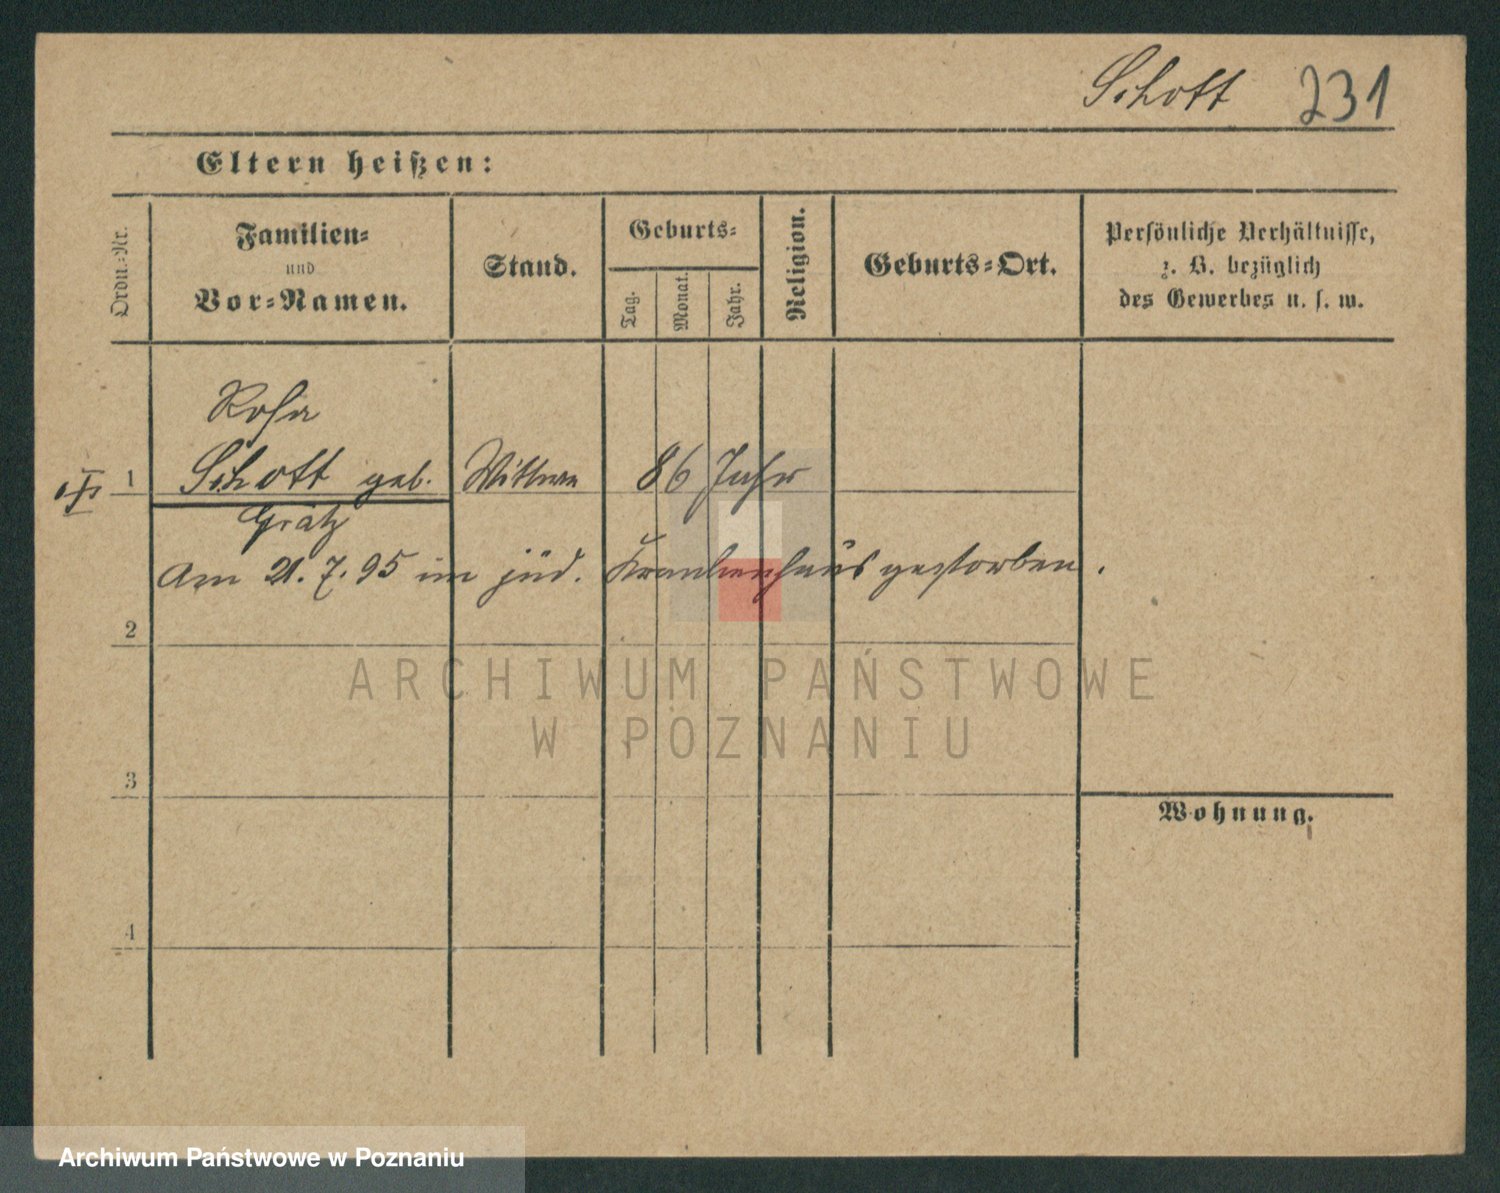 Schott 231
Eltern heißen:
Ordn.-Nr.
Familien-
und
Vor-Namen.
Stand.
Geburts-
Tag.
Monat.
Jahr.
Religion.
Geburts-Ort.
Persönliche Verhältnisse,
z. B. bezüglich
des Gewerbes u. s. w.
Rosa
1 Schott geb. Wittwe 86 Jahr
Grätz
Am 21. 7. 95 im jüd. Krankenhaus gestorben.
2
3
4
Wohnung.
ARCHIWUM PAŃSTWOWE
W POZNANIU
Archiwum Państwowe w Poznaniu